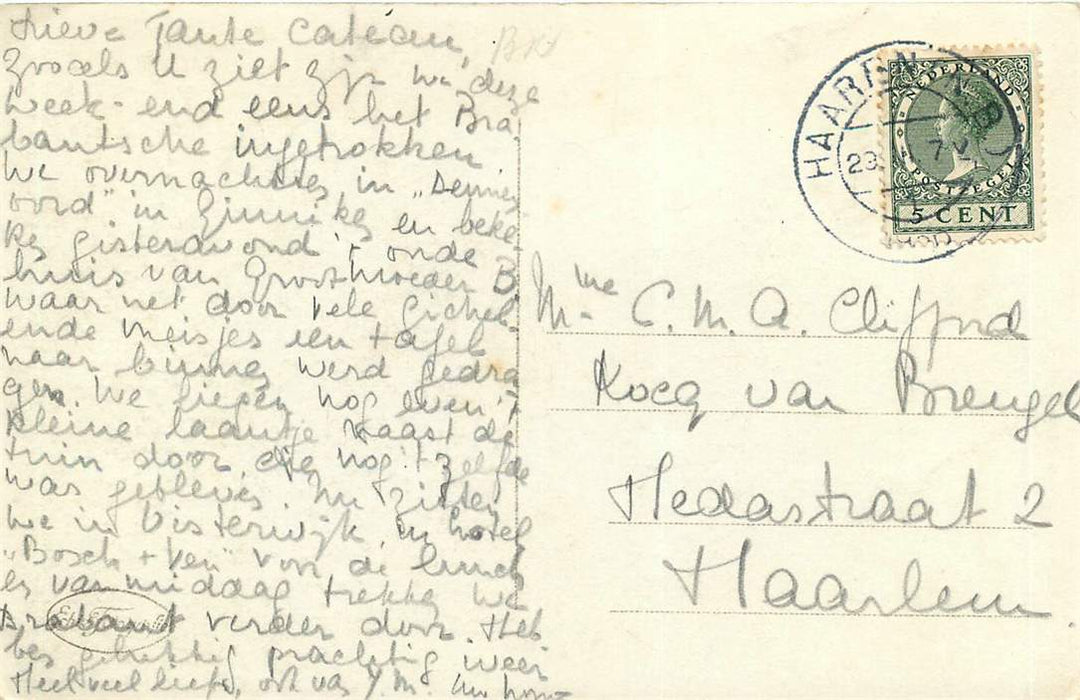 Lieve Tante Cateau,
Zooals U ziet zijn we deze
week-end eens het Bra
bantsche ingetrokken
We overnachtten in „Dennen
oord" in Ginniken en beke-
ken gisteravond 't oude
huis van Grootmoeder B
waar net door vele gichel-
ende meisjes een tafel
naar binnen werd gedra
gen. We liepen nog even 't
kleine laantje naast de
tuin door, die nog 't zelfde
was gebleven. Nu zitten
we in Oisterwijk in hotel
„Bosch + Ven" voor de lunch
en vanmiddag trekken we
Brabant verder door. Heb
ben gelukkig prachtig weer
Heel veel liefs, ook van
HAAREN N.B.
NEDERLAND
POSTZEGEL
5 CENT
Mme C. M. A. Clifford
Kocq van Breugel
Hedastraat 2
Haarlem